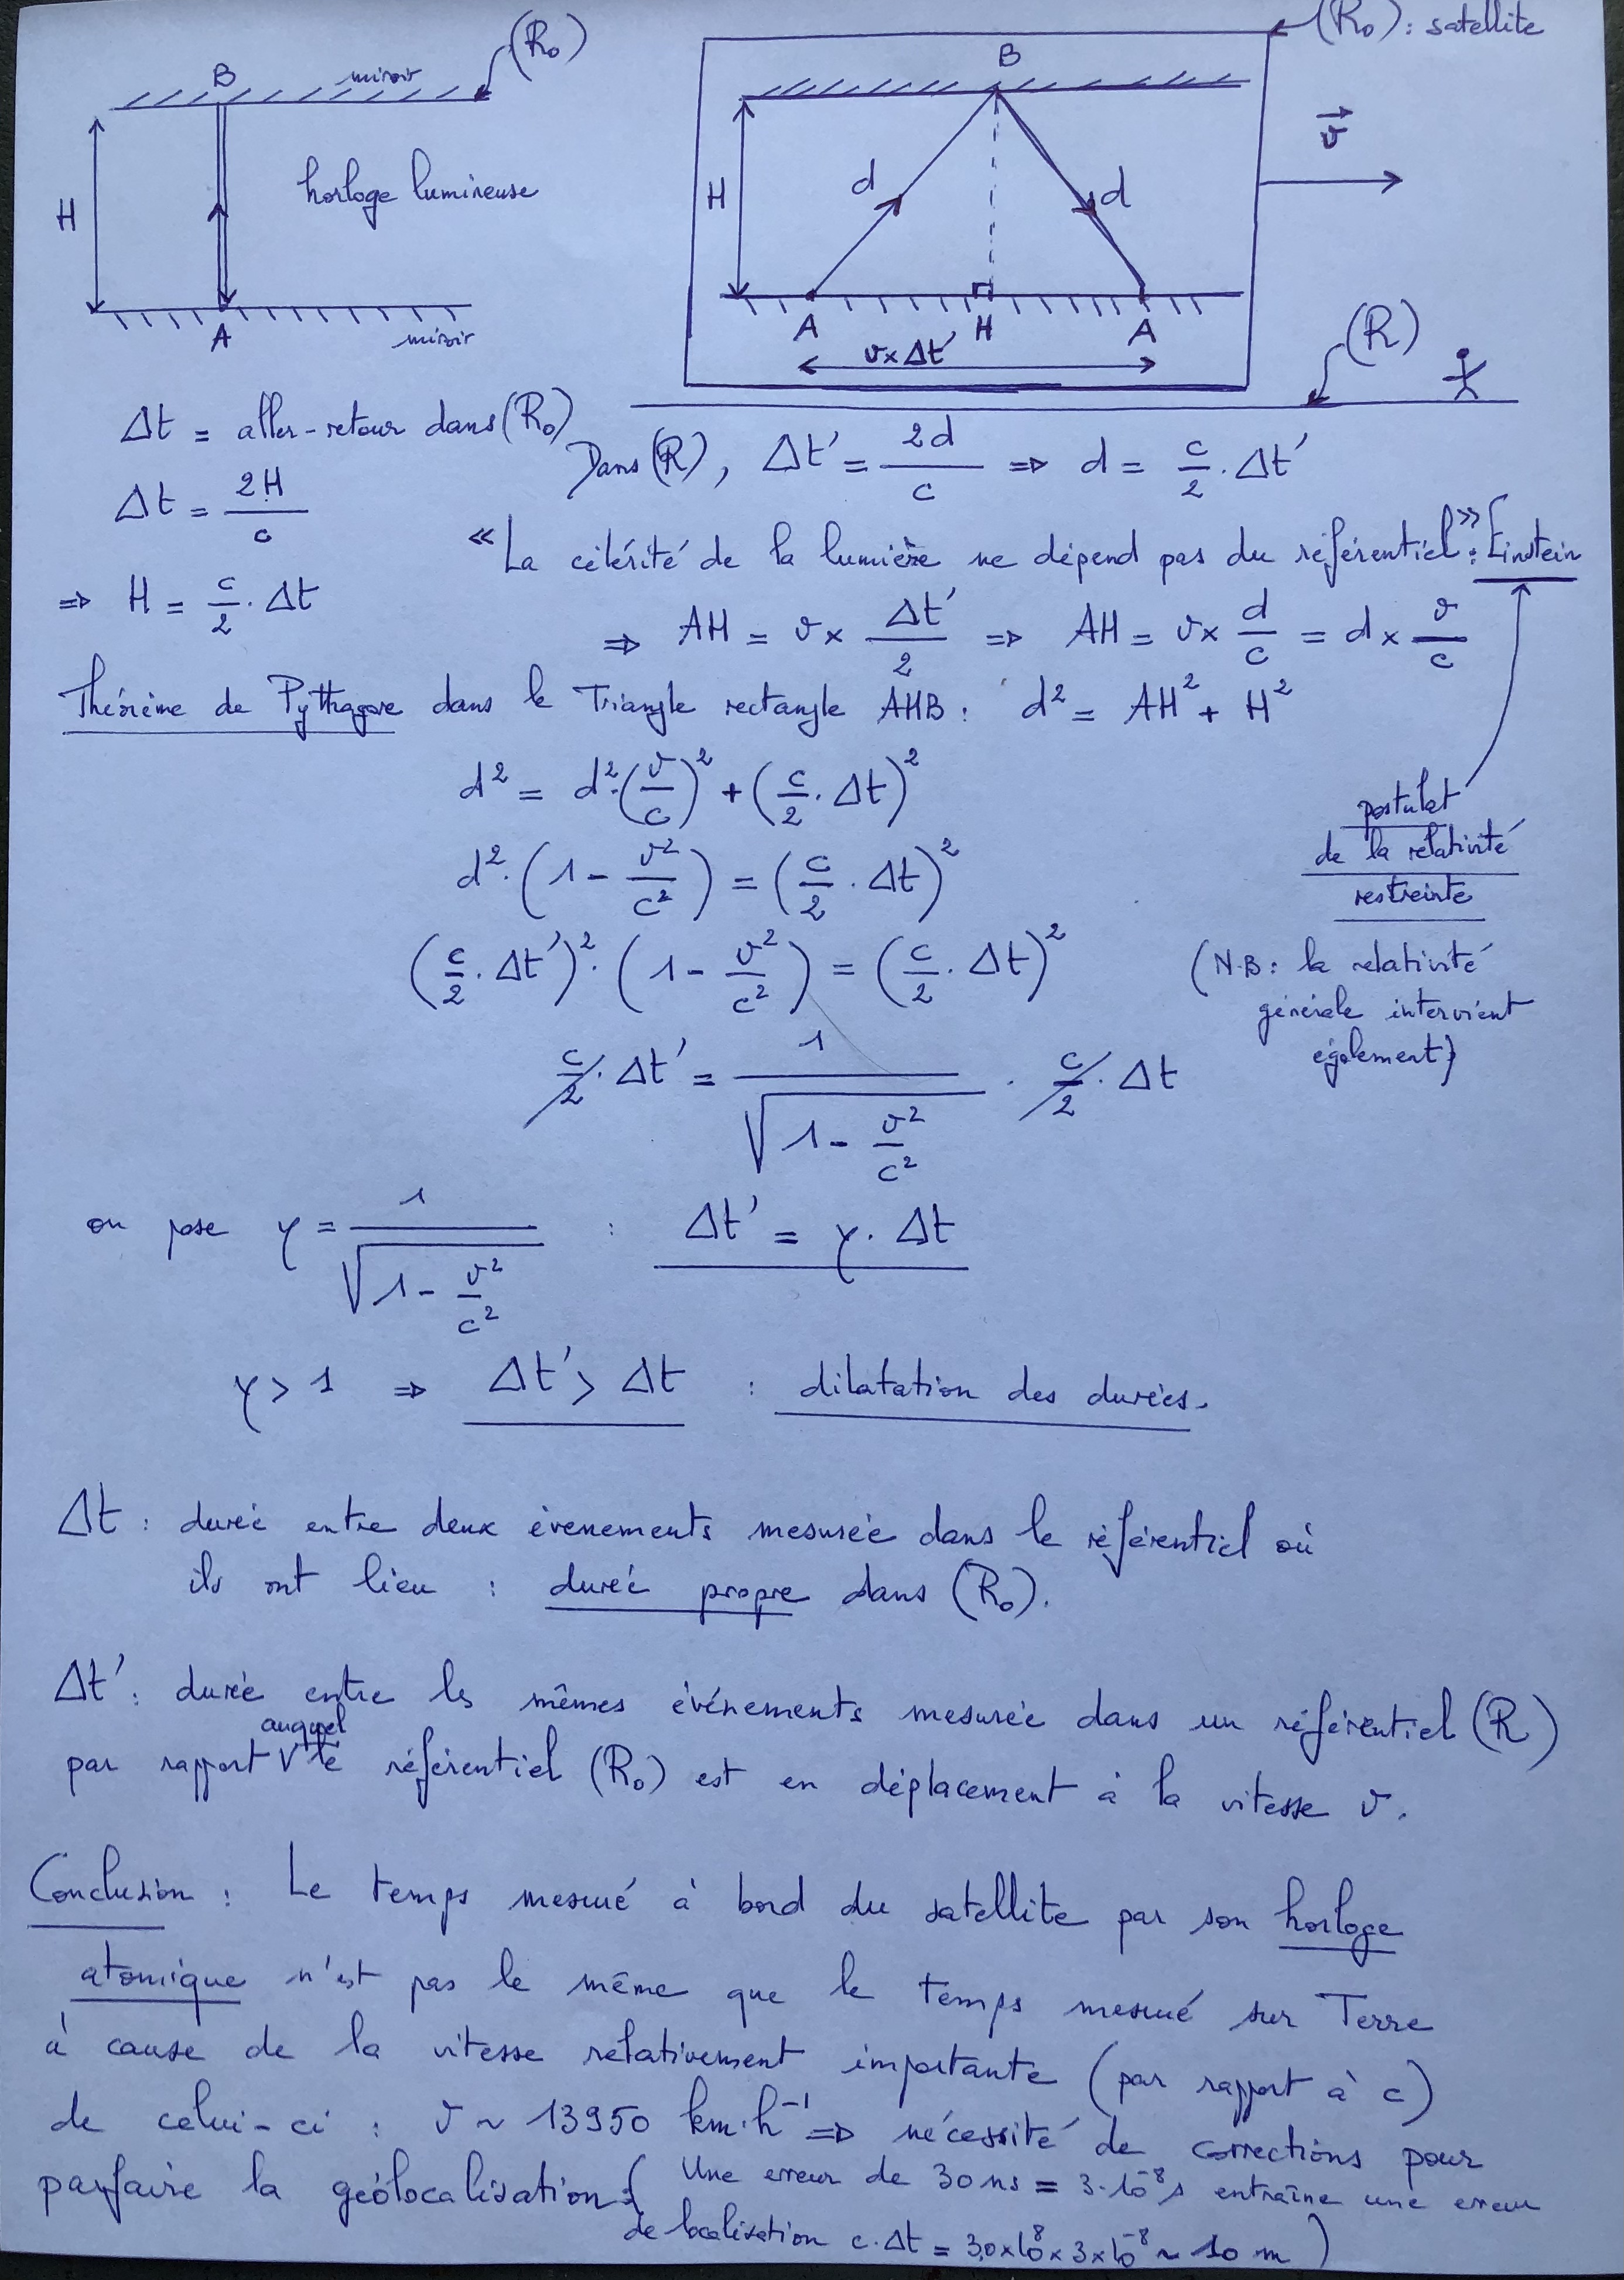 (R₀)
B
miroir
H
horloge lumineuse
A
miroir
(R₀) : satellite
B
H
d
d
v⃗
A
H
A
v × Δt'
(R)
Δt = aller-retour dans (R₀)
Δt = 2H/c
⇒ H = c/2 · Δt
Dans (R), Δt' = 2d/c ⇒ d = c/2 · Δt'
« La célérité de la lumière ne dépend pas du référentiel » : Einstein
⇒ AH = v × Δt'/2 ⇒ AH = v × d/c = d × v/c
Théorème de Pythagore dans le Triangle rectangle AHB : d² = AH² + H²
d² = d²·(v/c)² + (c/2 · Δt)²
d²·(1 - v²/c²) = (c/2 · Δt)²
(c/2 · Δt')²·(1 - v²/c²) = (c/2 · Δt)²
c/2 · Δt' = 1/√(1 - v²/c²) · c/2 · Δt
postulat
de la relativité
restreinte
(N.B : la relativité
générale intervient
également)
on pose γ = 1/√(1 - v²/c²) : Δt' = γ · Δt
γ > 1 ⇒ Δt' > Δt : dilatation des durées.
Δt : durée entre deux évènements mesurée dans le référentiel où
ils ont lieu : durée propre dans (R₀).
Δt' : durée entre les mêmes événements mesurée dans un référentiel (R)
par rapport auquel le référentiel (R₀) est en déplacement à la vitesse v.
Conclusion : Le temps mesuré à bord du satellite par son horloge
atomique n'est pas le même que le temps mesuré sur Terre
à cause de la vitesse relativement importante (par rapport à c)
de celui-ci : v ~ 13950 km·h⁻¹ ⇒ nécessité de corrections pour
parfaire la géolocalisation : ( Une erreur de 30 ns = 3·10⁻⁸ s entraîne une erreur
de localisation c·Δt = 3,0×10⁸ × 3×10⁻⁸ ~ 10 m )